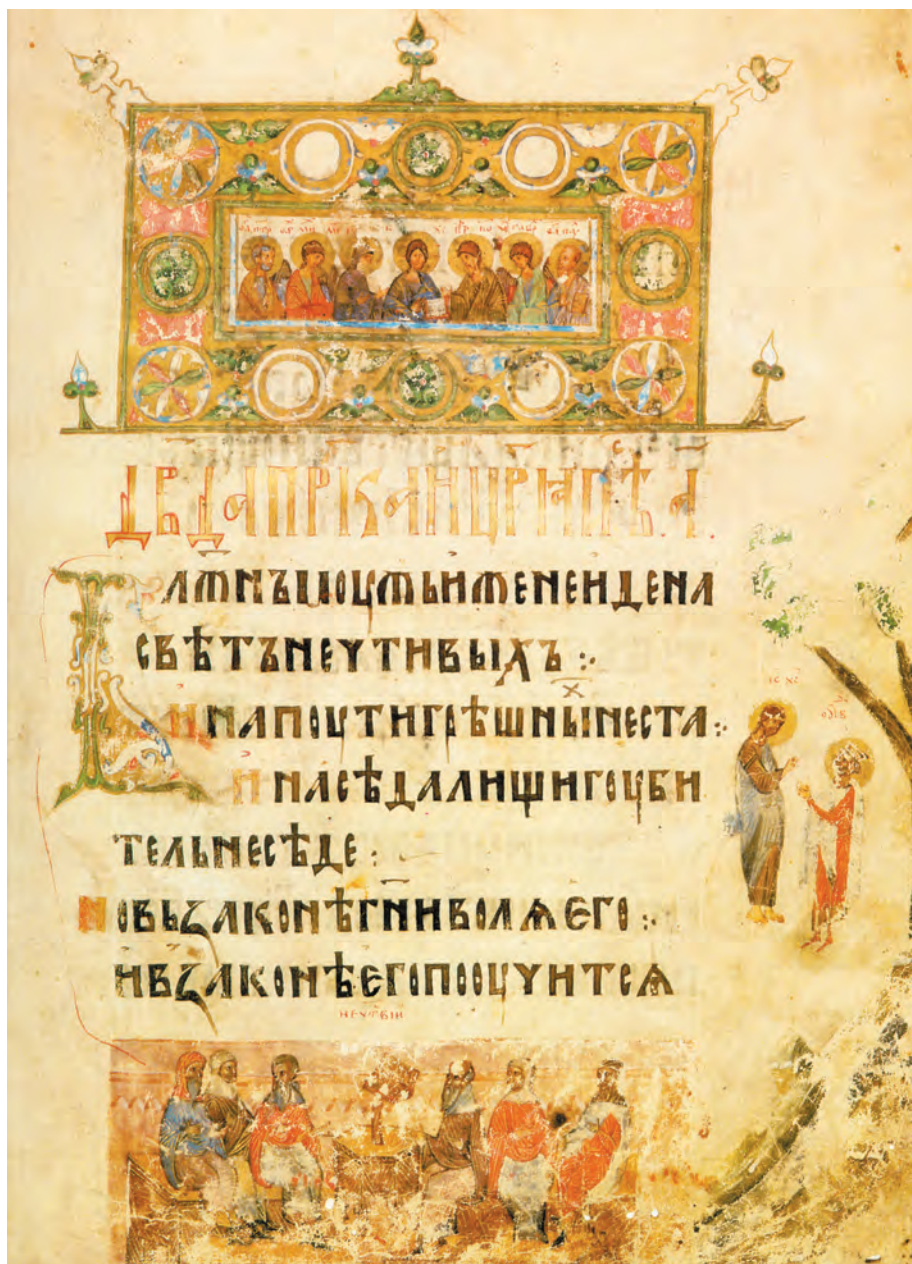 ДВДАПРРКАИЦРꙖПѢ.А҃.
БЛЖНЪМОУЖЬИЖЕНЕИДЕНА
СВѢТЪНЕЧТИВЫХЪ :·
ИНАПОУТИГРѢШНЫˣНЕСТА :·
ИНАСѢДАЛИЩИГОУБИ
ТЕЛЬНЕСѢДЕ :
НОВЬЗАКОНѢГН҃ИВОЛѦЕГО :·
ИВЗАКОНѢЕГОПООУЧИТСѦ
IC XC